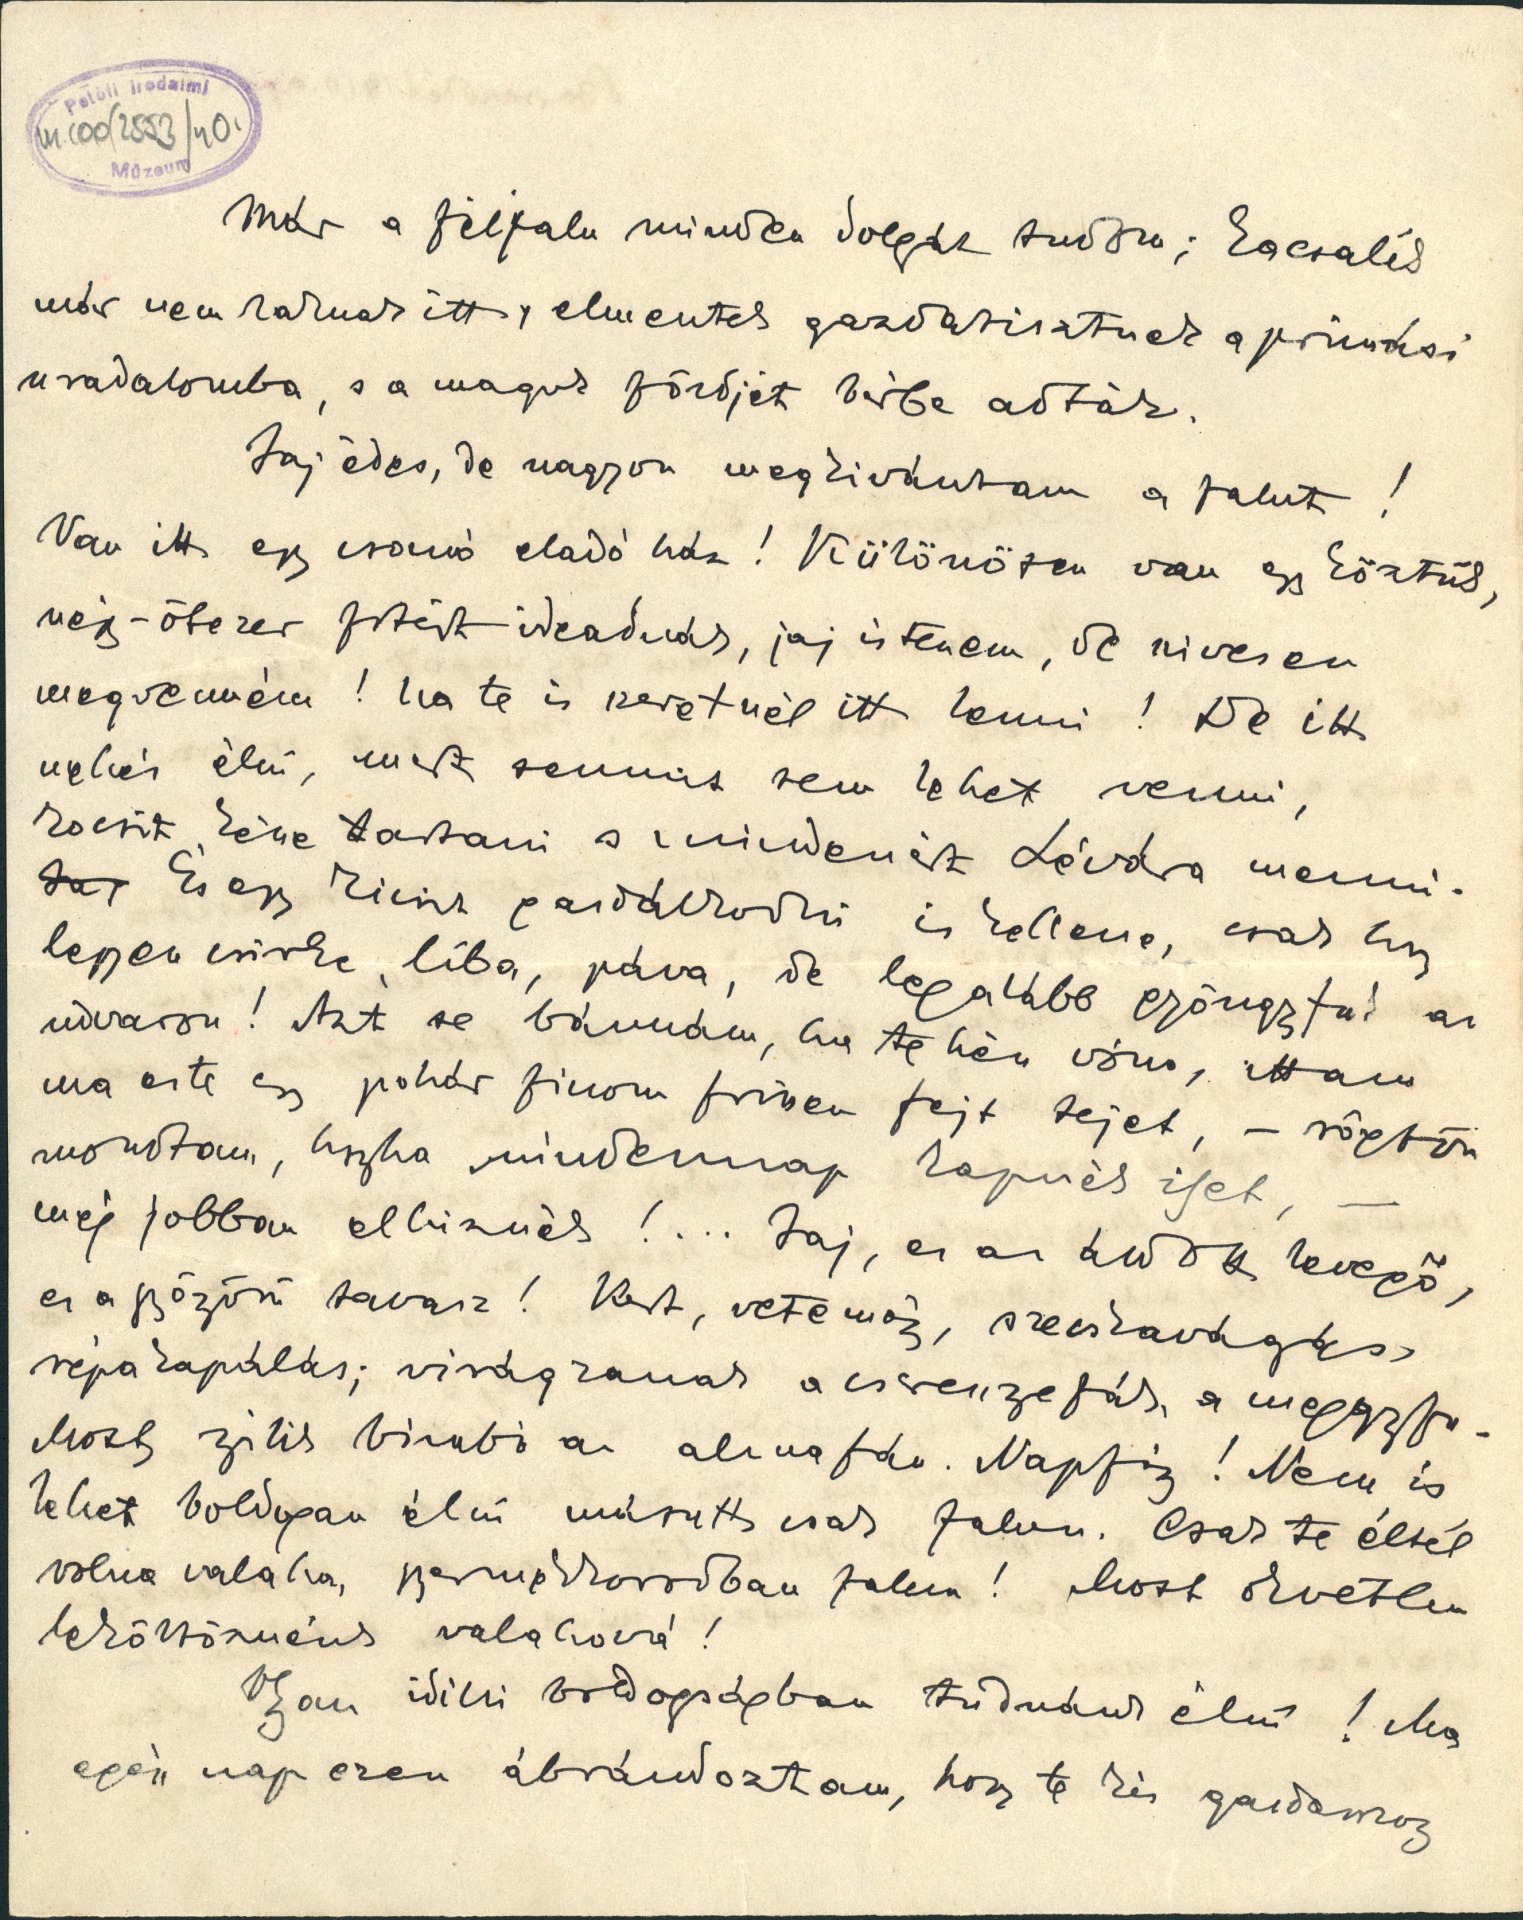 Petőfi Irodalmi
Múzeum
Már a félfalu minden dolgát tudom; Kacsalék
már nem laknak itt, elmentek gazdatisztnek a prímási
uradalomba, s a maguk földjét bérbe adták.
Jaj édes, de nagyon megkivántam a falut!
Van itt egy csomó eladó ház! Különösen van egy köztük,
négy-ötezer frtért ideadnák, jaj istenem, de szivesen
megvenném! ha te is szeretnél itt lenni! De itt
nehéz élni, mert semmit sem lehet venni,
kocsit kéne tartani s mindenért Lévára menni.
És egy kicsit gazdálkodni is kellene, csak hogy
legyen csirke, liba, páva, de legalább gyöngytyúk az
udvaron! Azt se bánnám, ha tehén vóna, ittam
ma este egy pohár finom frissen fejt tejet, – rögtön
mondtam, hogyha mindennap kapnék ilyet, –
még jobban elhiznék!... Jaj, ez az áldott levegő,
ez a gyönyörű tavasz! Kert, vetemény, szecskavágás,
répakapálás; virágzanak a cseresznyefák, a meggyfa.
Most nyilik bimbó az almafán. Napfény! Nem is
lehet boldogan élni másutt csak falun. Csak te éltél
volna valaha, gyermekkorodban falun! Most okvetlen
leköltöznénk valahová!
Olyan idilli boldogságban tudnánk élni! Ma
egész nap ezen ábrándoztam, hogy te kis gazdasszony